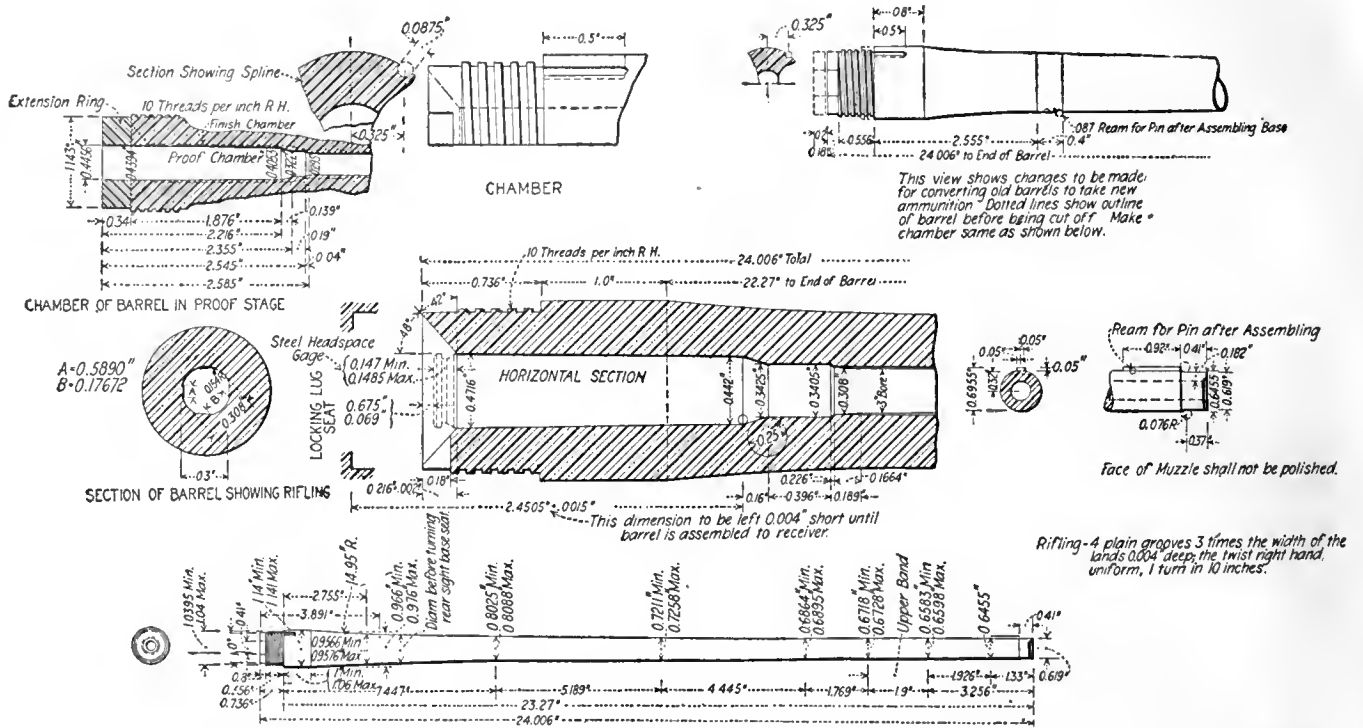 0.0875"
Section Showing Spline
0.5"
Extension Ring
10 Threads per inch R H.
Finish Chamber
0.325"
1.143"
0.4456"
0.4394"
Proof Chamber
0.4053"
0.322"
0.34
1.876"
0.139"
2.216"
0.19"
2.355"
0.04"
2.545"
2.585"
CHAMBER OF BARREL IN PROOF STAGE
CHAMBER
0.325"
0.8"
0.5"
0.2"
0.18"
0.556"
2.555"
0.4"
.087 Ream for Pin after Assembling Base
24.006" to End of Barrel
This view shows changes to be made
for converting old barrels to take new
ammunition Dotted lines show outline
of barrel before being cut off Make
chamber same as shown below.
10 Threads per inch R H.
24.006" Total
0.736"
1.0"
22.27" to End of Barrel
42°
48°
Steel Headspace
Gage
0.147 Min.
0.1485 Max.
0.675"
0.069"
LOCKING LUG
SEAT
0.4716"
HORIZONTAL SECTION
0.442"
0.3425"
0.3405"
0.308"
.3" Bore
0.25"
0.18"
0.226"
0.1664"
0.16"
0.396"
0.189"
2.4505"-0.015"
This dimension to be left 0.004" short until
barrel is assembled to receiver.
A=0.5890"
B=0.17672
B
0.308"
0.3"
SECTION OF BARREL SHOWING RIFLING
Ream for Pin after Assembling
0.92"
0.41"
0.182"
0.05"
0.05"
0.05"
0.6955"
0.32"
0.6455
0.619"
0.076R
0.37"
Face of Muzzle shall not be polished.
Rifling-4 plain grooves 3 times the width of the
lands 0.004" deep; the twist right hand,
uniform, 1 turn in 10 inches.
1.0395 Min.
1.04 Max.
0.41"
1.14" Min.
1.141 Max.
2.755"
3.891"
14.95" R.
0.966" Min.
0.976" Max.
Diam before turning
rear sight base seat
0.8025" Min.
0.8088" Max.
0.7211" Min.
0.7258" Max.
0.6864" Min.
0.6895" Max.
0.6718" Min.
0.6728" Max.
Upper Band
0.6583" Min
0.6598" Max.
0.6455"
0.41"
0.9566 Min
0.9576 Max
1 Min.
1.06 Max.
0.8"
0.556"
0.736"
7.447"
5.189"
4.445"
1.769"
1.9"
1.926"
1.33"
3.256"
0.619"
23.27"
24.006"